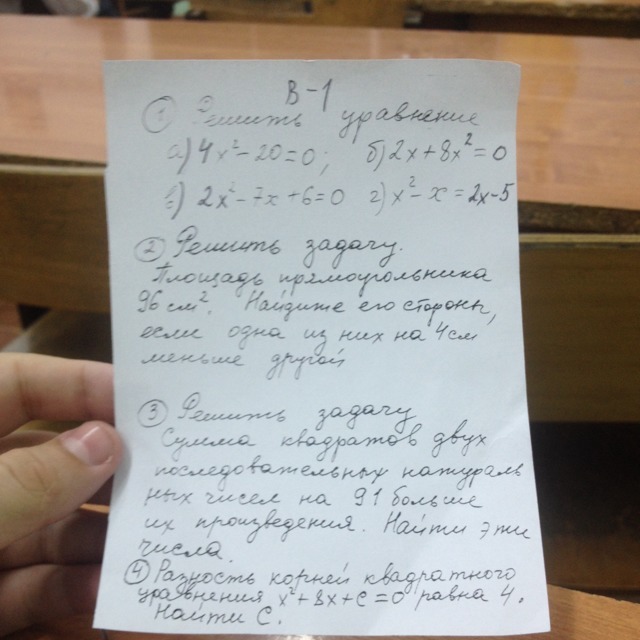 В-1
① Решить уравнение
а) 4x²-20=0; б) 2x+8x²=0
в) 2x²-7x+6=0 г) x²-x=2x-5
② Решить задачу.
Площадь прямоугольника
96 см². Найдите его стороны,
если одна из них на 4 см
меньше другой
③ Решить задачу
Сумма квадратов двух
последовательных натураль
ных чисел на 91 больше
их произведения. Найти эти
числа.
④ Разность корней квадратного
уравнения x²+8x+c=0 равна 4.
Найти С.